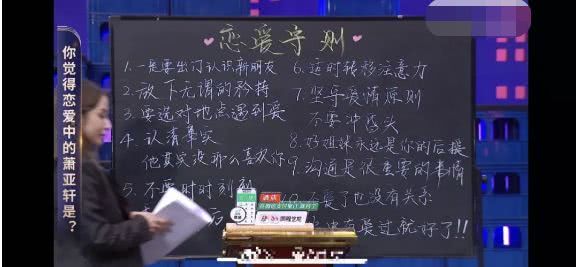 恋爱守则
1. 一定要出门认识新朋友
2. 放下无谓的矜持
3. 要选对地点遇到爱
4. 认清事实
他其实没那么喜欢你
5. 不要时时刻刻
后
6. 适时转移注意力
7. 坚守爱情原则
不要冲昏头
8. 好姐妹永远是你的后援
9. 沟通是很重要的事情
10. 不爱了也没有关系
爱过就好了!!
你觉得恋爱中的萧亚轩是?